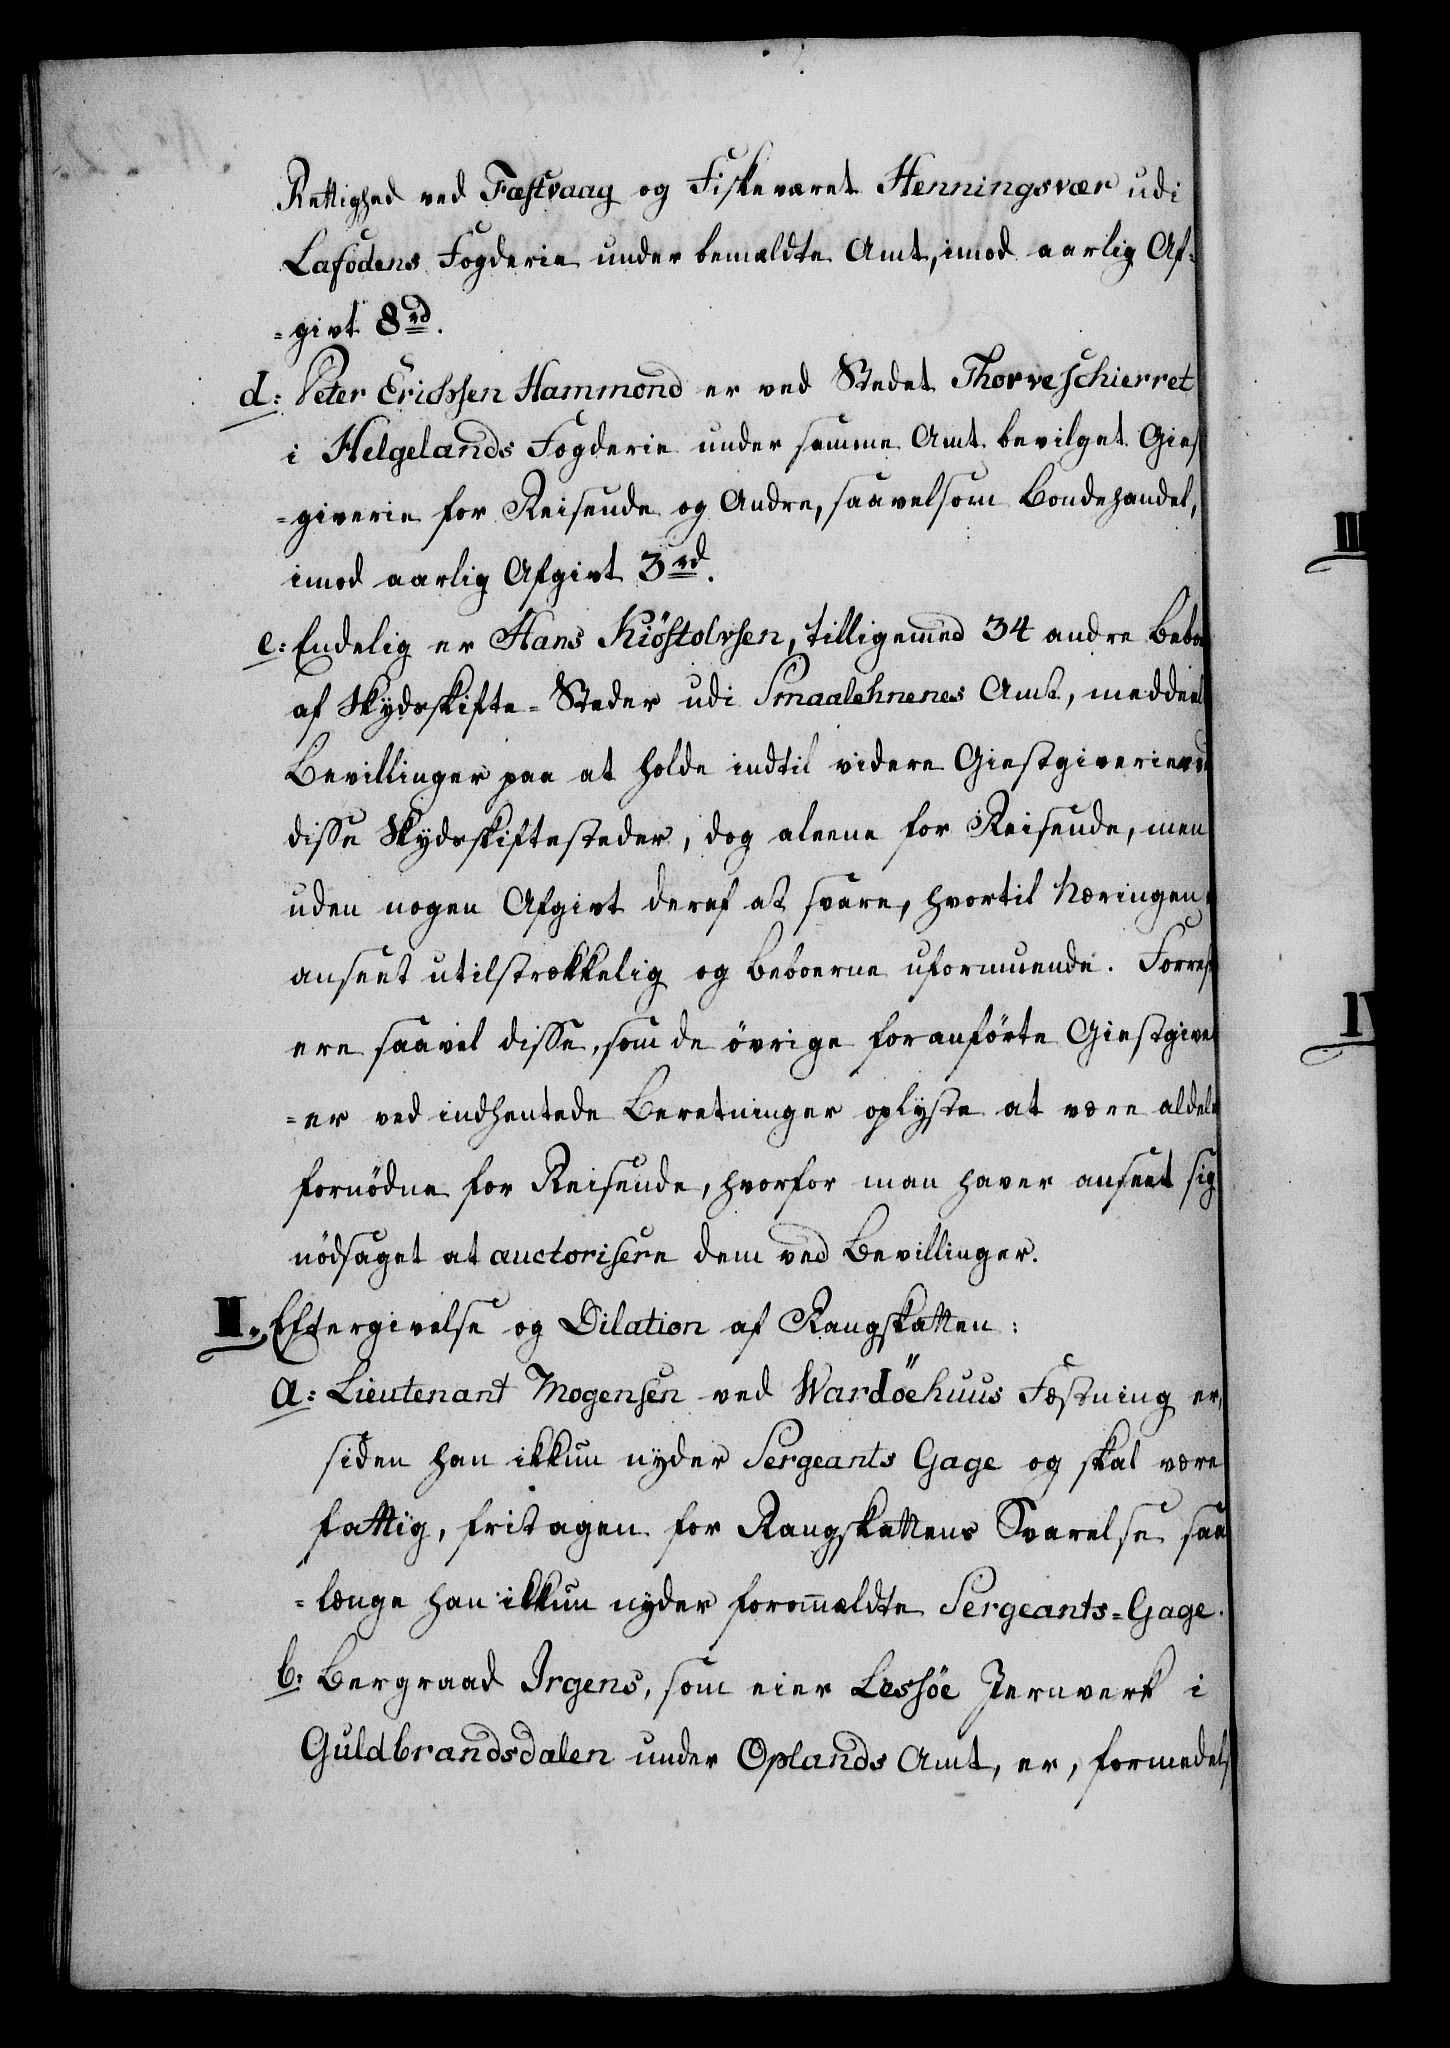 Rettighed ved Fæstvaag og Fiskeværet Henningsvær udi
Lafodens Fogderie under bemældte Amt, imod aarlig Af-
=givt 8 rd.
d: Peter Erichsen Hammond er ved Stedet Thorveschierret
i Helgelands Fogderie under samme Amt bevilget Giest
=giverie for Reisende og Andre, saavelsom Bondehandel,
imod aarlig Afgivt 3 rd.
e: Endelig er Hans Kiöstolvsen, tilligemed 34 andre Beboe
af Skydsskifte-Steder udi Smaalehnenes Amt, meddeel
Bevillinger paa at holde indtil videre Giestgiverie ved
disse Skydsskiftesteder, dog aleene for Reisende, men
uden nogen Afgivt deraf at svare, hvortil Næringen
anseet utilstrækkelig og Beboerne uformuende. Forrest
ere saavel disse, som de övrige foranförte Giestgive
=er ved indhentede Beretninger oplyste at være aldele
fornödne for Reisende, hvorfor man haver anseet sig
nödsaget at auctorisere dem ved Bevillinger.
II. Eftergivelse og Dilation af Rangskatten:
a: Lieutenant Mogensen ved Wardöehuus Fæstning er,
siden han ikkun nyder Sergeants Gage og skal være
fattig, fritagen for Rangskattens Svarelse saa
=længe han ikkun nyder formældte Sergeants-Gage.
b: Bergraad Irgens, som eier Lessöe Jernverk i
Guldbrandsdalen under Oplands Amt, er, formedelst
III
IV